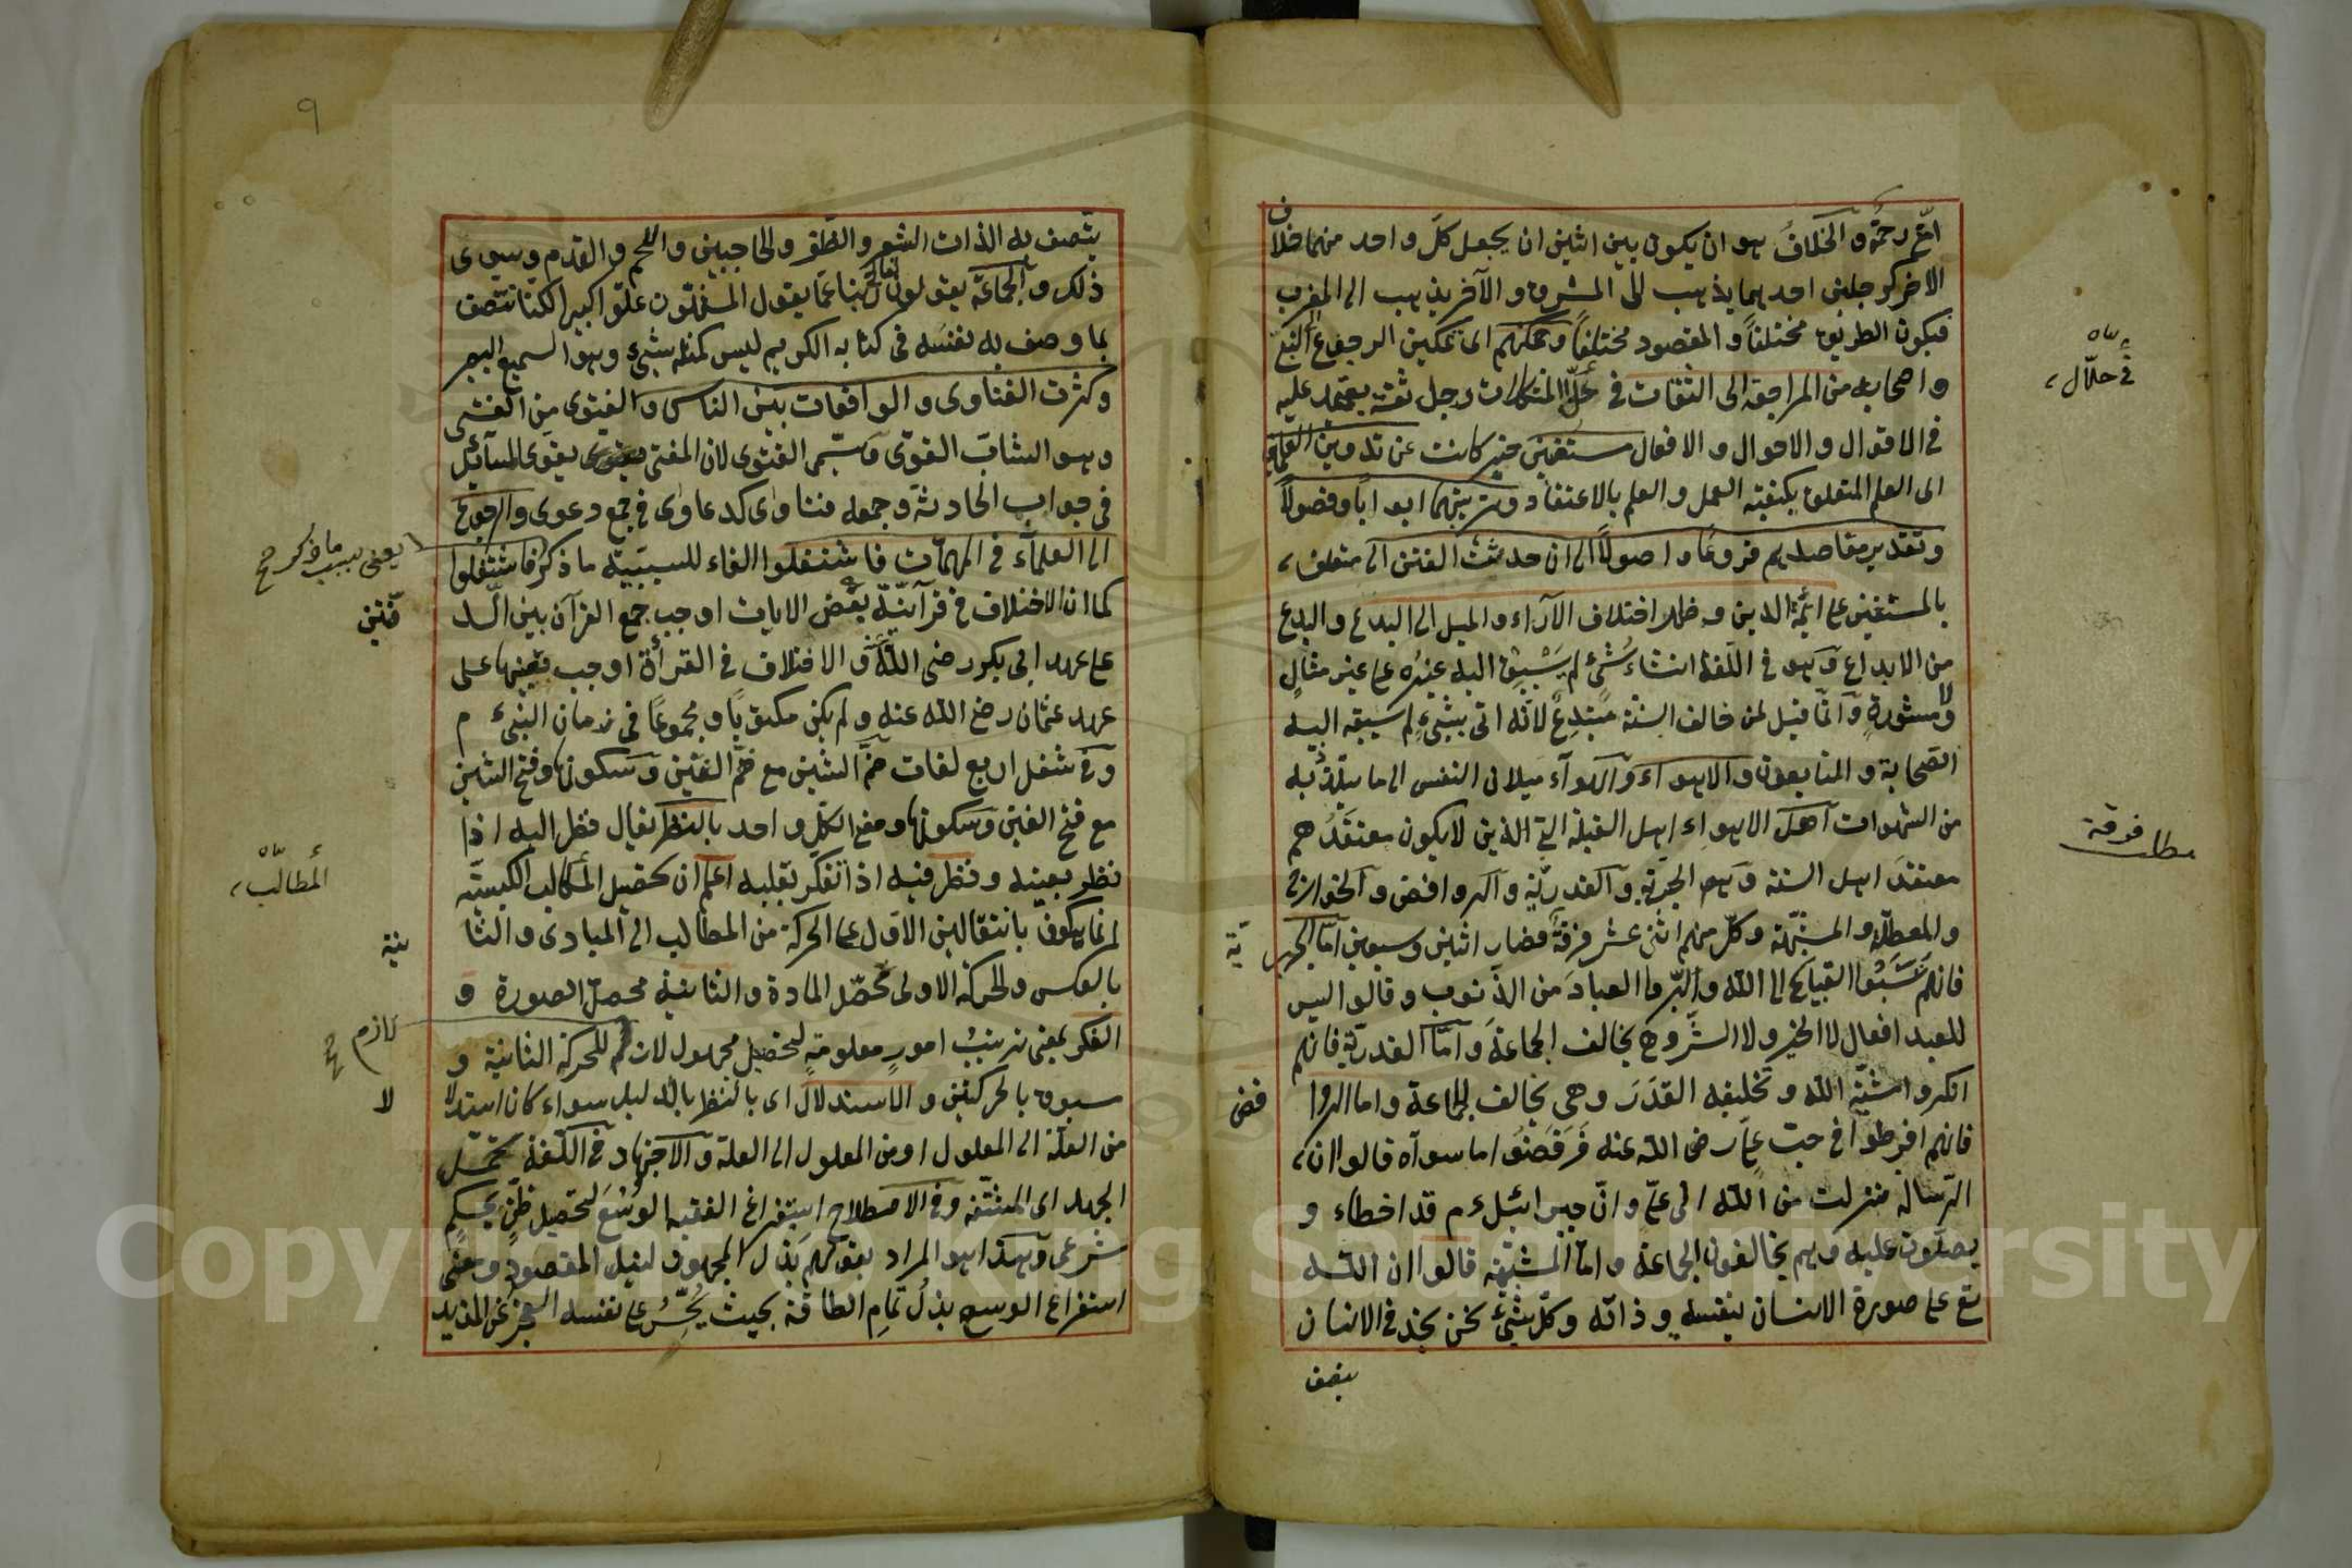 امّتى رحمة والخلاف هو ان يكون بين اثنين ان يجعل كلّ واحد منهما خلاف
الاخر كرجلين احدهما يذهب الى المشرق والآخر يذهب الى المغرب
فيكون الطريق مختلفاً والمقصود مختلفاً وتمكنهم اى تمكين الرجوع
واصحابه من المراجعة الى الثقات فى حلّ المشكلات رجل ثقة يعتمد عليه
فى الاقوال والاحوال والافعال مستغنين خبر كانت عن تدوين العلمين
اى العلم المتعلق بكيفية العمل والعلم بالاعتقاد وترتيبهما ابواباً وفصولاً
وتقدير مقاصدهم فروعا واصولاً الى ان حدثت الفتن الى متعلق
بالمستغنين على ائمّة الدين وظهر اختلاف الآراء والميل الى البدع والبدع
من الابداع وهو فى اللغة انشاء شئ لم يسبق اليه غيره على غير مثال
ولا مشورة وانّما قيل لمن خالف السنة مبتدع لانّه اتى بشئ لم يسبقه اليه
الصّحابة والتابعون والاهواء والاهوآء ميلان النفس الى ما يتلذّ به
من الشهوات اهل الاهواء اهل القبلة الذين لا يكون معتقدهم
معتقد اهل السنة وهم الجبرية والقدريّة والروافض والخوارج
والمعطّلة والمشبّهة وكلّ منهم اثنى عشر فرقة فصار اثنين وسبعين امّا الجبرية
فانهم نسبوا القبايح الى الله وابرّوا العباد من الذنوب وقالوا ليس
للعبد افعال لا الخير ولا الشّر وهو يخالف الجماعة وامّا القدريّة فانهم
انكروا مشيّة الله وتخليقه القدر وهى يخالف الجماعة واما الروافض
فانهم افرطوا فى حبّ علىّ رضى الله عنه فرفضوا ما سواه قالوا ان
الرّسالة منزلت من الله الى علىّ وانّ جبرائيل ءم قد اخطاء و
يصلّون عليه وهم يخالفون الجماعة وامّا المشبّهة قالوا ان الله
تع على صورة الانسان بنفسه وذاته وكلّ شئ نحن نجد فى الانسان
يتصف
فى حلّال
مطلب فرقة
٩
يتصف به الذات الشعر والظفر والحاجبين واللحم والقدم وسوى
ذلك والجماعة يقولون تعالى ربّنا عمّا يقول المشبّهون علوّا كبيرا لكنّا نتصف
بما وصف به نفسه فى كتابه الكريم ليس كمثله شئ وهو السميع البصير
وكثرت الفتاوى والواقعات بين الناس والفتوى من الفتى
وهو الشاب القوّى وسمّى الفتوى لان المفتى يقوّى السائل
فى جواب الحادثة وجمعه فتاوى كدعاوى فى جمع دعوى والرجوع
الى العلماء فى المهمّات فاشتغلوا الفاء للسببيّة ما ذكر فاشتغلوا
كما ان الاختلاف فى قرآنيّة بعض الايات اوجب جمع القرآن بين الد
فّتين
على عهد ابى بكر رضى الله عنه والاختلاف فى القرأة اوجب على
عهد عثمان رضى الله عنه ولم يكن مكتوباً ومجموعاً فى زمان النبىّ ءم
وفى شغل اربع لغات ضمّ الشين مع ضمّ الغين وسكونها وفتح الشين
مع فتح الغين وسكونها ومعنى الكل واحد بالنظر يقال نظر اليه اذا
نظر بعينه ونظر فيه اذا تفكّر بقلبه اعلم ان تحصيل المطالب الكسبيّة
انما يكون بانتقالين الاول على الحركة من المطالب الى المبادى والثا
نية
بالعكس والحركة الاولى تحصّل المادة والثانية محصل الصورة و
الفكر بمعنى ترتيب امور معلومة لتحصيل مجهول لازم للحركة الثانية و
سبوق بالحركتين والاستدلال اى بالنظر بالدليل سواء كان استدلا
لا
من العلّة الى المعلول او من المعلول الى العلة والاجتهاد فى اللغة تحمّل
الجهد اى المشقّة وفى الاصطلاح استفراغ الفقيه الوسع لتحصيل ظنّ بحكم
شرعى وهذا هو المراد بقولهم بذل المجهود لنيل المقصود ومعنى
استفراغ الوسع بذل تمام الطاقة بحيث يحسّ على نفسه العجز عن المزيد
يعنى بسبب ما ذكر
المطالب
لازم